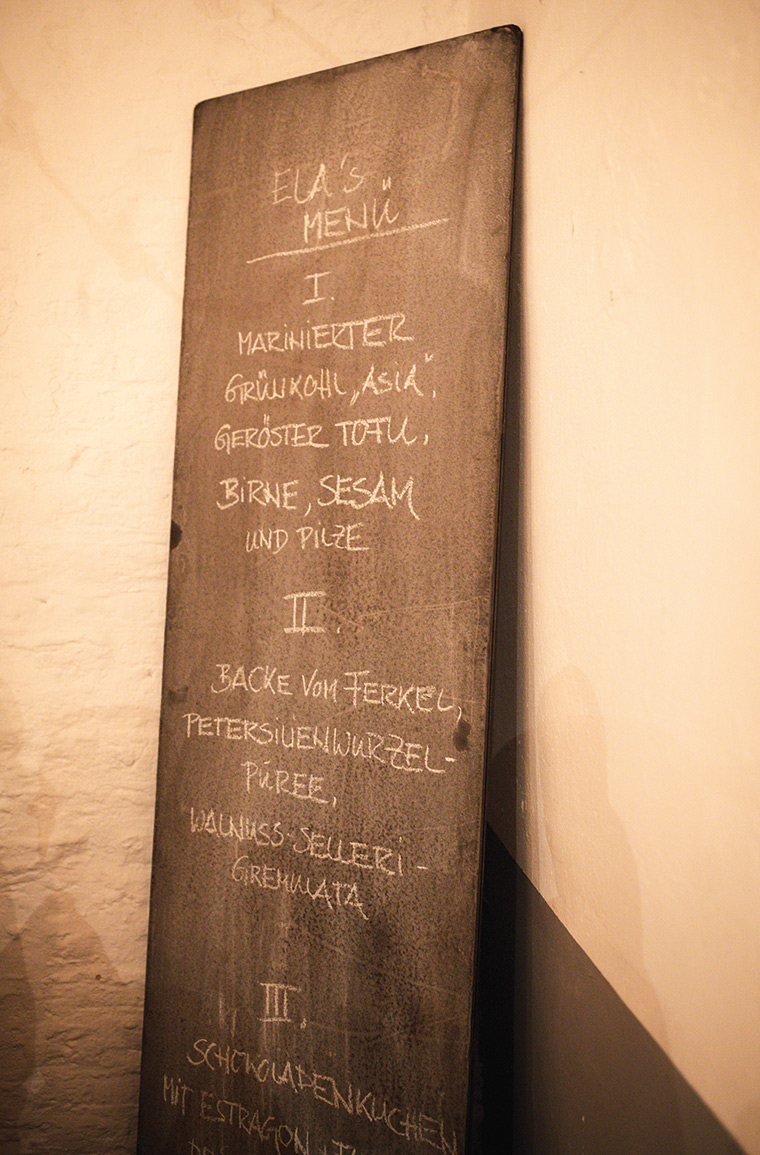 ELA'S
MENÜ
I.
MARINIERTER
GRÜNKOHL „ASIA",
GERÖSTER TOFU,
BIRNE, SESAM
UND PILZE
II.
BACKE VOM FERKEL,
PETERSILIENWURZEL-
PÜREE,
WALNUSS-SELLERI-
GREMMATA
III.
SCHOKOLADENKUCHEN
MIT ESTRAGON